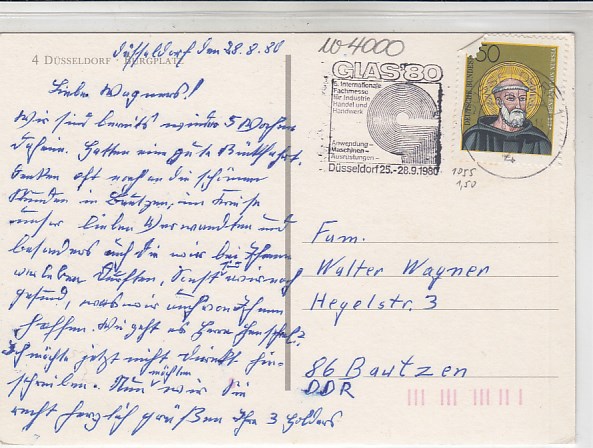 4 DÜSSELDORF · BURGPLATZ
Düsseldorf den 28.8.80
Liebe Wagners!
Wir sind bereits wieder 5 Wochen
daheim. Hatten eine gute Rückfahrt.
Denken oft noch an die schönen
Stunden in Bautzen, im Kreise
unser lieben Verwandten und
besonders auch die wir bei Ihnen
verleben durften. Sonst wir noch
gesund, was wir auch von Ihnen
hoffen. Wie geht es Herrn Henschel?
Ich möchte jetzt nicht direkt hin-
schreiben. Nun möchten wir Sie
recht herzlich grüßen Ihre 3 Golders
10 4000
GLAS'80
6. Internationale
Fachmesse
für Industrie
Handel und
Handwerk
Anwendung–
Maschinen–
Ausrüstungen–
Düsseldorf 25.-28.9.1980
50
DEUTSCHE BUNDESPOST
1055
1,50
Fam.
Walter Wagner
Hegelstr. 3
86 Bautzen
DDR